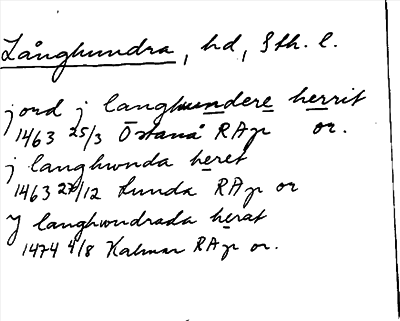 Långhundra, hd, Sth. l.
jord j langhwndere herrit
1463 25/3 Östanå RAp or.
j langhwnda heret
1463 27/12 Lunda RAp or
Y langhwndrada herat
1474 4/8 Kalmar RAp or.